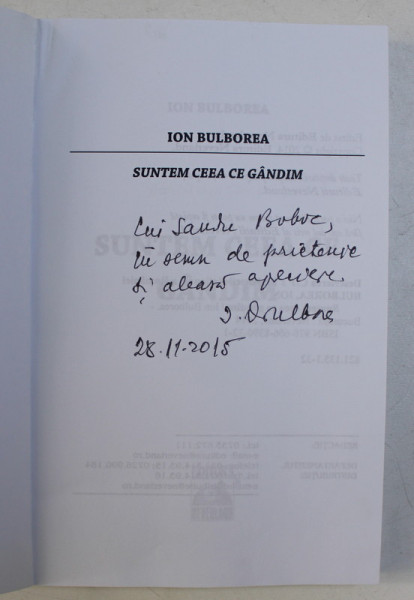 ION BULBOREA
SUNTEM CEEA CE GÂNDIM
Lui Sandu Boboc,
în semn de prietenie
și aleasă apreciere
I. Bulborea
28.11.2015